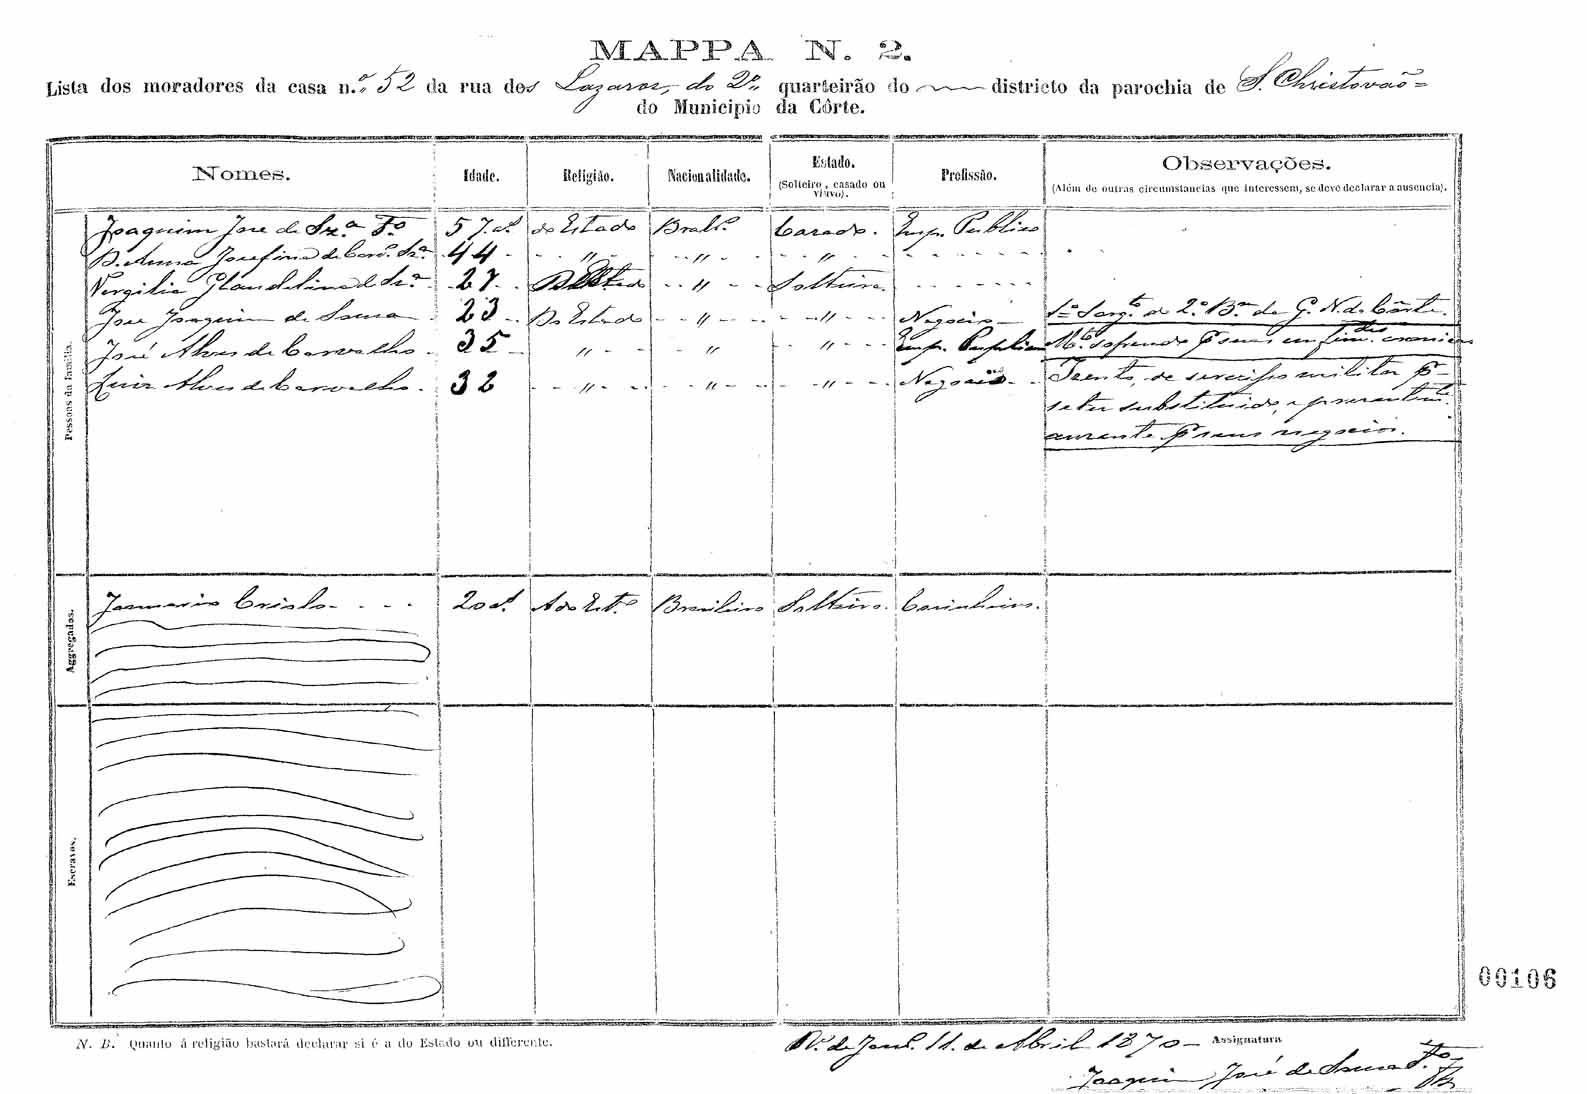 MAPPA N. 2.
Lista dos moradores da casa n.º 52 da rua dos Lazaros, do 2.º quarteirão do districto da parochia de S. Christovaõ=
do Municipio da Côrte.
Nomes. Idade. Religião. Nacionalidade. Estado. Profissão. Observações.
(Solteiro, casado ou viuvo). (Além de outras circumstancias que interessem, se deve declarar a ausencia).
Pessoas da familia.
Joaquim José de Sz.ª F.º 57 a.s do Estado Brasº. Casado. Emp. Publico
D. Anna Josefina de Carv.º Sz.ª 44 - " - - " - - " -
Vergilia de Sz.ª 27 - " - Solteira
José Joaquim de Sousa 23 Do Estado - " - - " - Negocio 1.º Sarg.to do 2.º B.m da G. N. da Côrte.
José Alves de Carvalho. 35 " " - " - Emp. M.to sofrendo
Luiz Alves de Carvalho. 32 - " - - " - - " - Negocio Isento de serviço militar p.r
se ter substituido, e presentem.te
auzente p.r seus negocios.
Aggregados.
Januario Crioulo 20 a.s A do Est.º Brasileiro Solteiro. Cosinheiro.
Escravos.
00106
N. B. Quanto á religião bastará declarar si é a do Estado ou differente.
R.º de Jan.º 11 de Abril 1870 Assignatura
Joaquim José de Sousa F.º